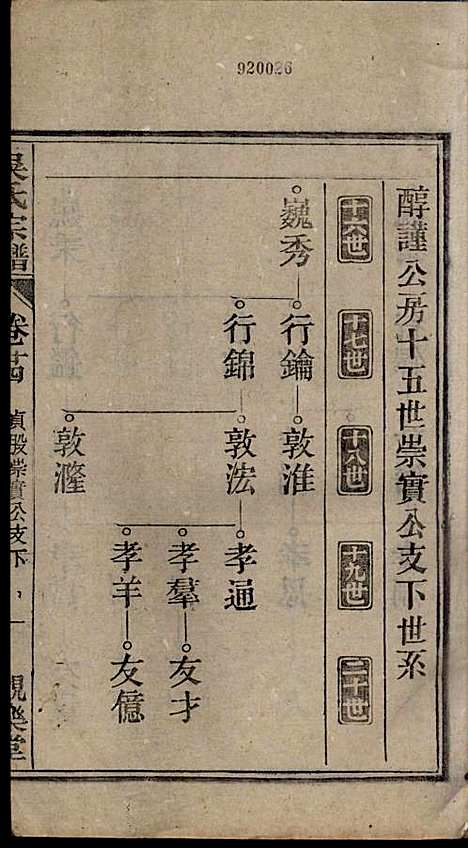 920026
醇謹公房十五世崇實公支下世系
十六世 十七世 十八世 十九世 二十世
巍秀 行鑰 敦淮
行錦 敦浤 孝通
孝羣 友才
孝羊 友億
敦瀊
吳氏宗譜 卷之四 貞股崇實公支下 一 親樂堂